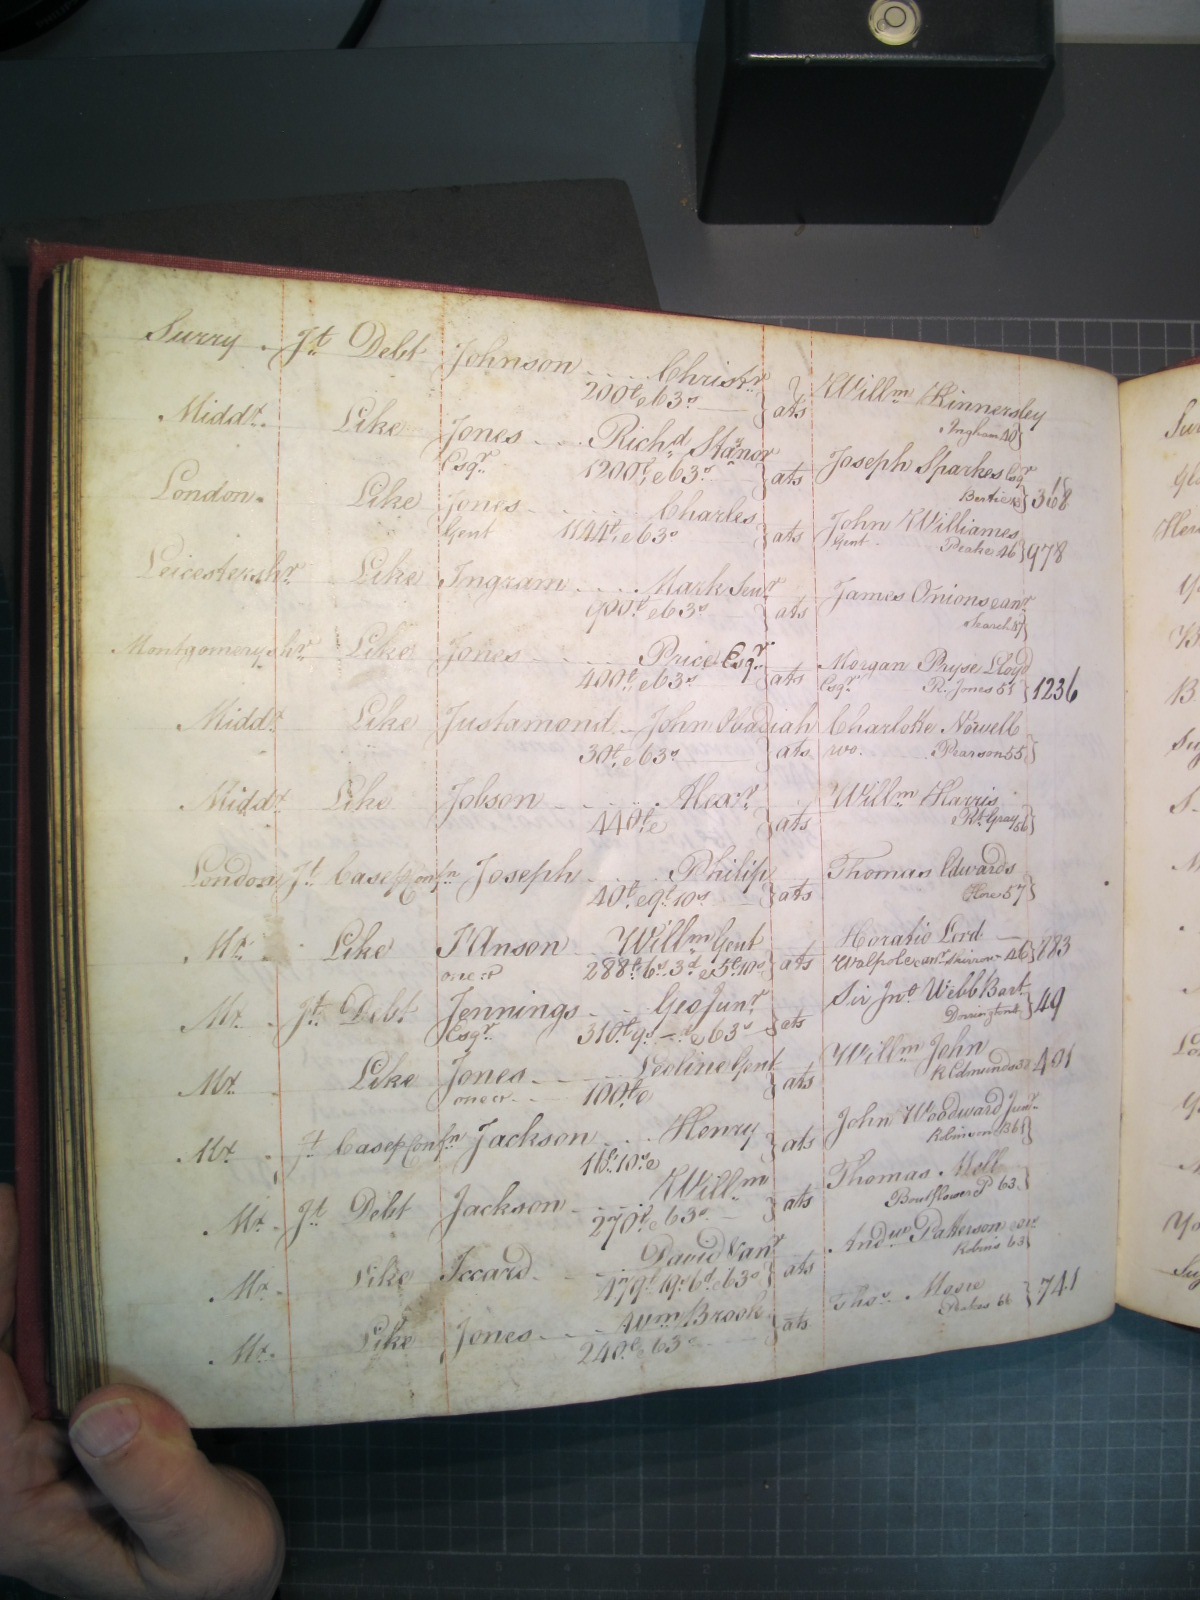 Surry Jt Debt Johnson Christr ats Willm Kinnersley
200£ e 63s Ingham 40
Middx Like Jones Richd Stanor ats Joseph Sparkes Esqr
Esqr 1200£ e 63s 368
London Like Jones Charles ats John Williames
Gent 1144£ e 63s Gent Peake 46 978
Leicestershr Like Ingram Mark Senr ats James Onions
900£ e 63s Search
Montgomeryshr Like Jones Price Esqr ats Morgan Pryse Lloyd
400£ e 63s Esqr R. Jones 51 1236
Middx Like Justamond John Obadiah Charlotte Nowell
30£ e 63s ats wo. Pearson 55
Middx Like Jobson Alexr Willm Harris
440£ e ats Gray 56
London Jt Case p Confn Joseph Philip Thomas Edwards
40£ e 9£ 10s ats Hore 57
Mx Like I'Anson Willm Gent Horatio Lord
one &c 288£ 6s 3d e 5£ 10s ats Walpole 46 783
Mx Jt Debt Jennings Geo Junr Sir Jno Webb Bart
Esqr 310£ 9s e 63s ats 49
Mx Like Jones Leoline Gent Willm John
one &c 100£ e ats Edmunds 491
Mx Jt Case p Confn Jackson Henry ats John Woodward Junr
11£ 10s e Robinson
Mx Jt Debt Jackson Willm ats Thomas Mell
270£ e 63s Boulflower P 63
Mx Like Iccard David Van ats Andw Patterson
179£ 19s 6d e 63s Robins 63
Mx Like Jones Wm Brook ats Thos Moore
240£ e 63s 66 741